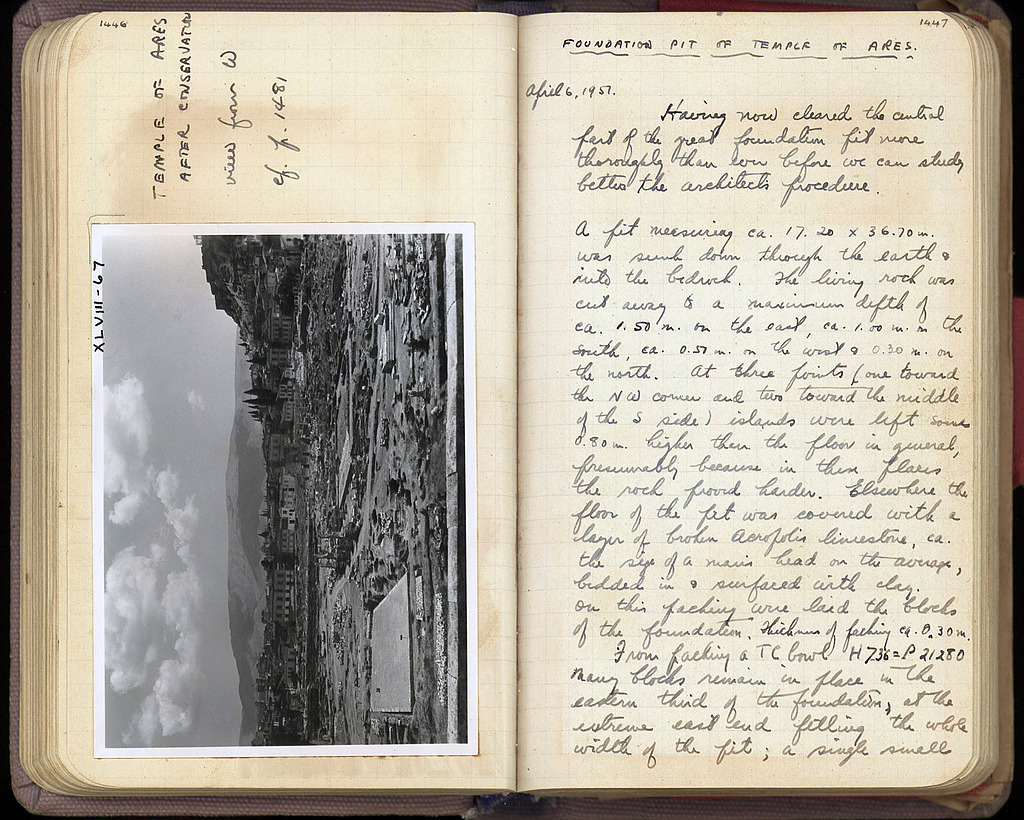 1446
TEMPLE OF ARES
AFTER CONSERVATION
view from W
cf. p. 1481
XLVIII-67
1447
FOUNDATION PIT OF TEMPLE OF ARES.
April 6, 1951.
Having now cleared the central
part of the great foundation pit more
thoroughly than ever before we can study
better the architect's procedure.
A pit measuring ca. 17.20 x 36.70 m.
was sunk down through the earth &
into the bedrock. The living rock was
cut away to a maximum depth of
ca. 1.50 m. on the east, ca. 1.00 m. on the
south, ca. 0.50 m. on the west & 0.30 m. on
the north. At three points (one toward
the NW corner and two toward the middle
of the S side) islands were left some
0.80 m. higher than the floor in general,
presumably because in these places
the rock proved harder. Elsewhere the
floor of the pit was covered with a
layer of broken Acropolis limestone, ca.
the size of a man's head on the average,
bedded in & surfaced with clay.
On this packing were laid the blocks
of the foundation. Thickness of packing ca. 0.30 m.
From packing a TC bowl H 736 = P 21280
Many blocks remain in place in the
eastern third of the foundation, at the
extreme east end filling the whole
width of the pit; a single small